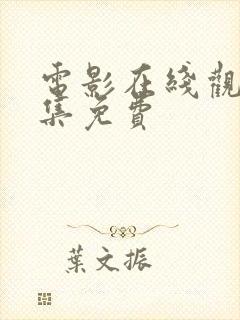 電影在綫觀
集免費
葉文振